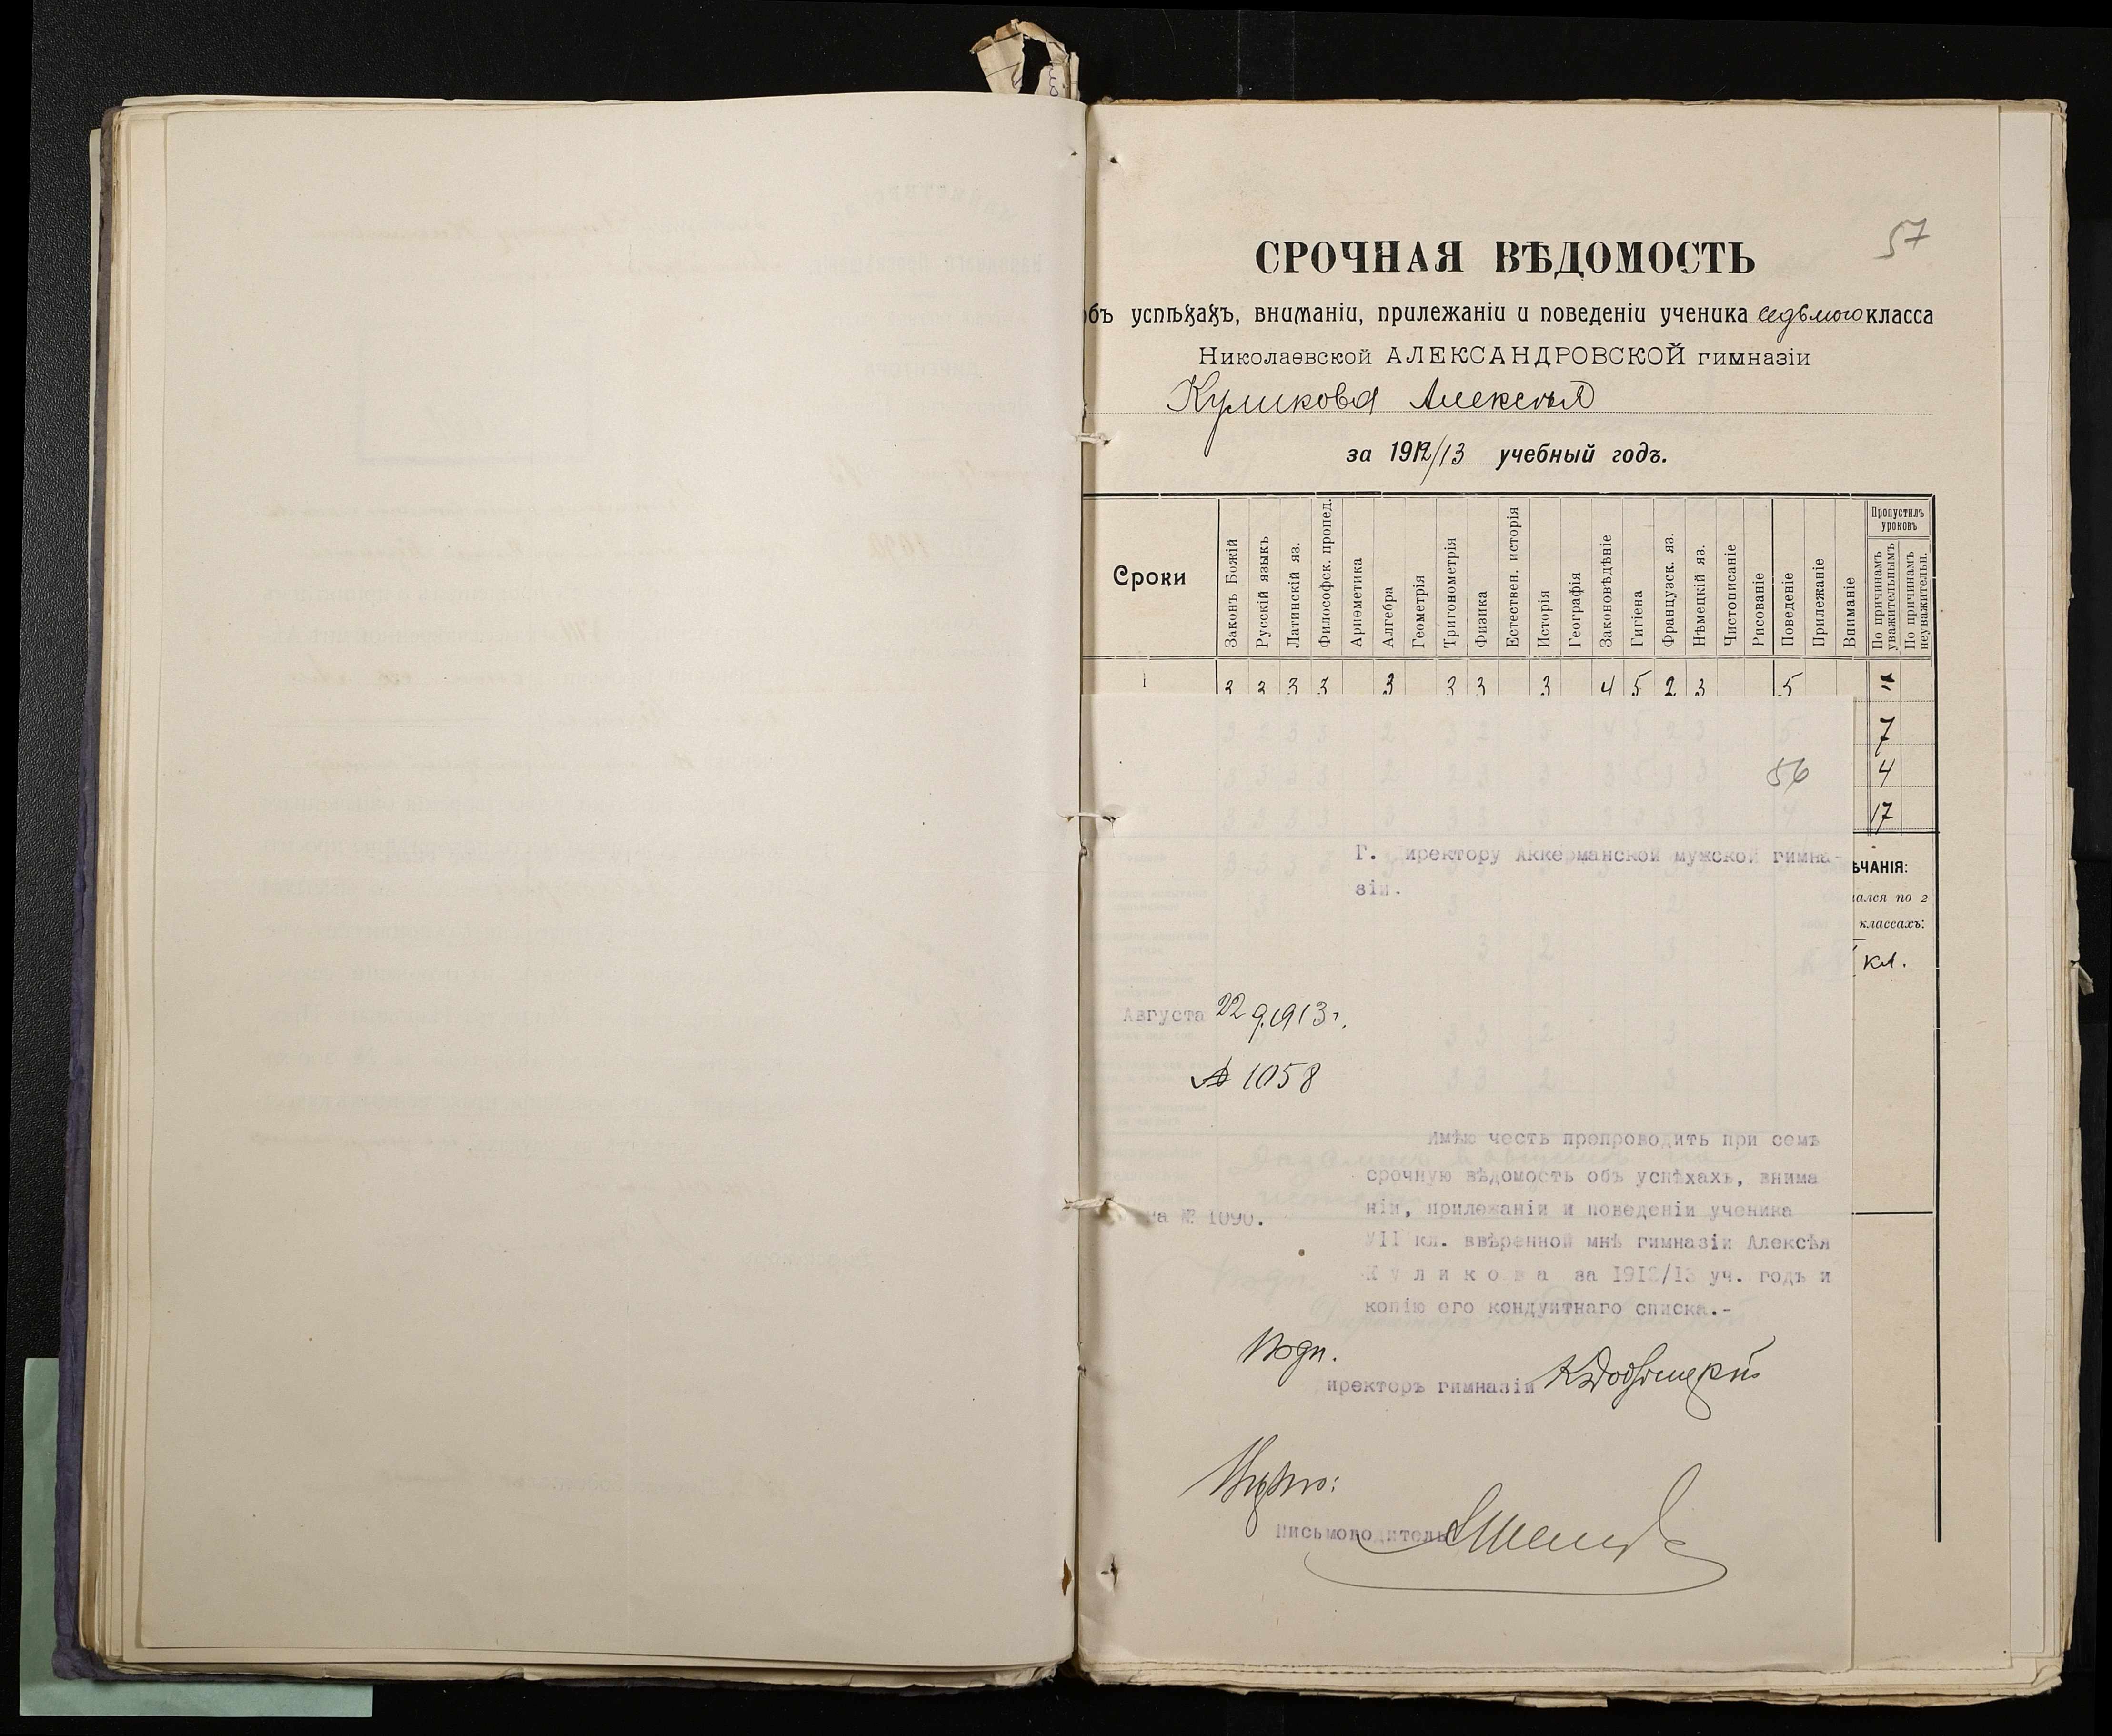 57
СРОЧНАЯ ВѢДОМОСТЬ
объ успѣхахъ, вниманіи, прилежаніи и поведеніи ученика седьмого класса
Николаевской АЛЕКСАНДРОВСКОЙ гимназіи
Куликова Алексѣя
за 1912/13 учебный годъ.
Сроки
Законъ Божій
Русскій языкъ
Латинскій яз.
Философск. пропед.
Ариѳметика
Алгебра
Геометрія
Тригонометрія
Физика
Естествен. исторія
Исторія
Географія
Законовѣдѣніе
Гигіена
Французск. яз.
Нѣмецкій яз.
Чистописаніе
Рисованіе
Поведеніе
Прилежаніе
Вниманіе
Пропустилъ уроковъ
По причинамъ уважительнымъ
По причинамъ неуважительн.
3 3 3 3 3 3 4 5 2 3 5
7
4
17
56
ѢЧАНІЯ:
ался по 2
классахъ:
кл.
Г. иректору Аккерманской мужской гимна-
зіи.
Августа 22 9.1913 г.
№ 1058
на № 1090.
Имѣю честь препроводить при семъ
срочную вѣдомость объ успѣхахъ, внима
ніи, прилежаніи и поведеніи ученика
УІІ кл. ввѣренной мнѣ гимназіи Алексѣя
К у л и к о в а за 1912/13 уч. годъ и
копію его кондуитнаго списка.-
Подп.
иректоръ гимназіи
Письмоводитель